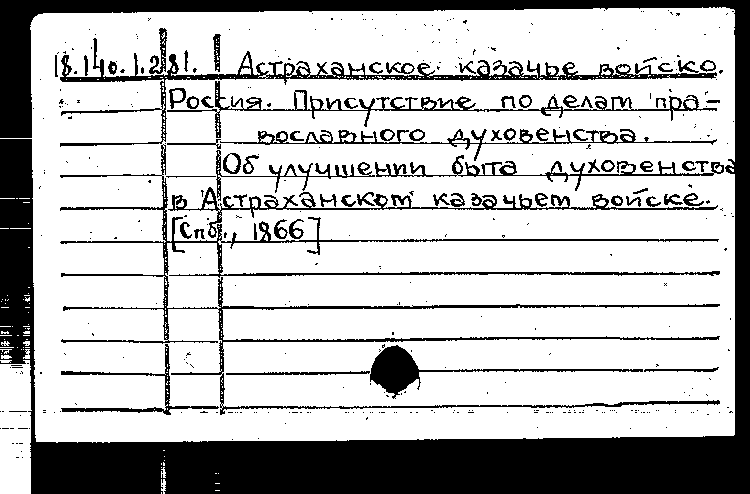 18.140.1.281. Астраханское казачье войско.
Россия. Присутствие по делам пра-
вославного духовенства.
Об улучшении быта духовенства
в Астраханском казачьем войске.
[Спб., 1866]